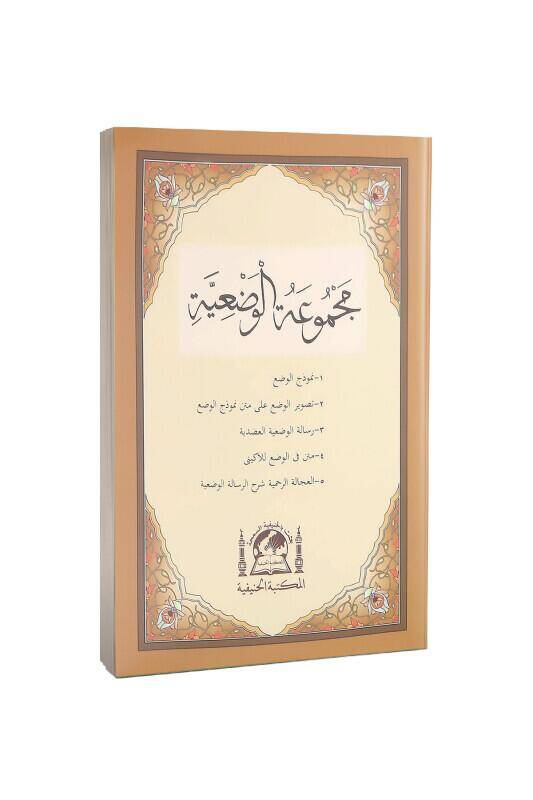 مَجْمُوعَةُ الْوَضْعِيَّةِ
١-نموذج الوضع
٢-تصوير الوضع على متن نموذج الوضع
٣-رسالة الوضعية العضدية
٤-متن فى الوضع للاكينى
٥-العجالة الرحمية شرح الرسالة الوضعية
المكتبة الحنيفية